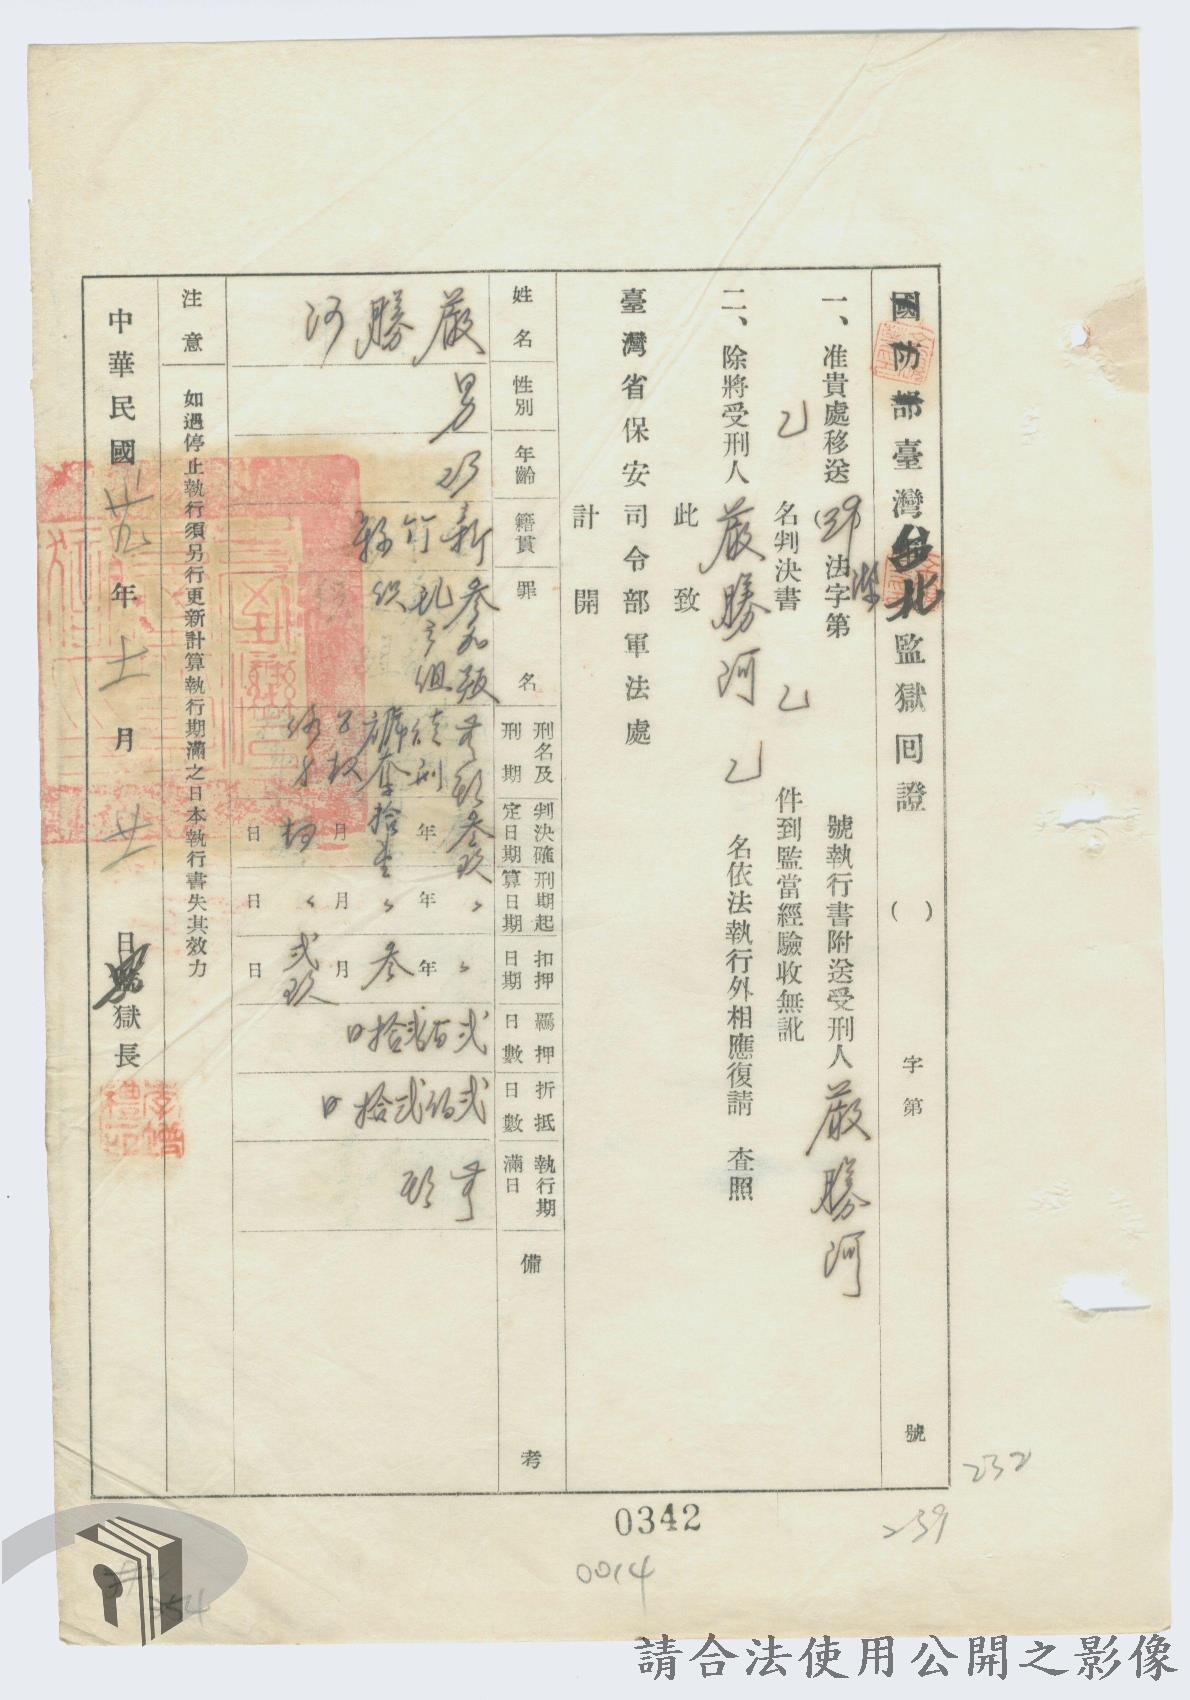 國防部臺灣台北監獄回證 ( ) 字第 號
一、准貴處移送 法字第 號執行書附送受刑人嚴勝河
乙 名判決書 乙 件到監當經驗收無訛
二、除將受刑人嚴勝河 乙 名依法執行外相應復請 查照
此致
臺灣省保安司令部軍法處
計開
姓名 嚴勝河
性別 男
年齡
籍貫 新竹縣
罪名 參加叛亂之組織
刑名及刑期 無期徒刑褫奪公權終身
判決確定日期 參玖年拾壹月 日
刑期起算日期 〃年〃月〃日
扣押日期 〃年參月貳玖日
羈押日數 貳百貳拾日
折抵日數 貳佰貳拾日
執行期滿日 無期
備考
注意 如遇停止執行須另行更新計算執行期滿之日本執行書失其效力
中華民國卅九年十一月廿 日 獄長
李
禮
0342
0014
232
239
254
請合法使用公開之影像